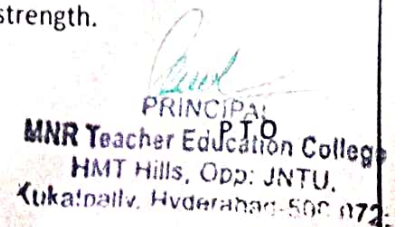 strength.
PRINCIPAL
P.T.O
MNR Teacher Education College
HMT Hills, Opp: JNTU.
Kukatpally, Hyderabad-500 072.